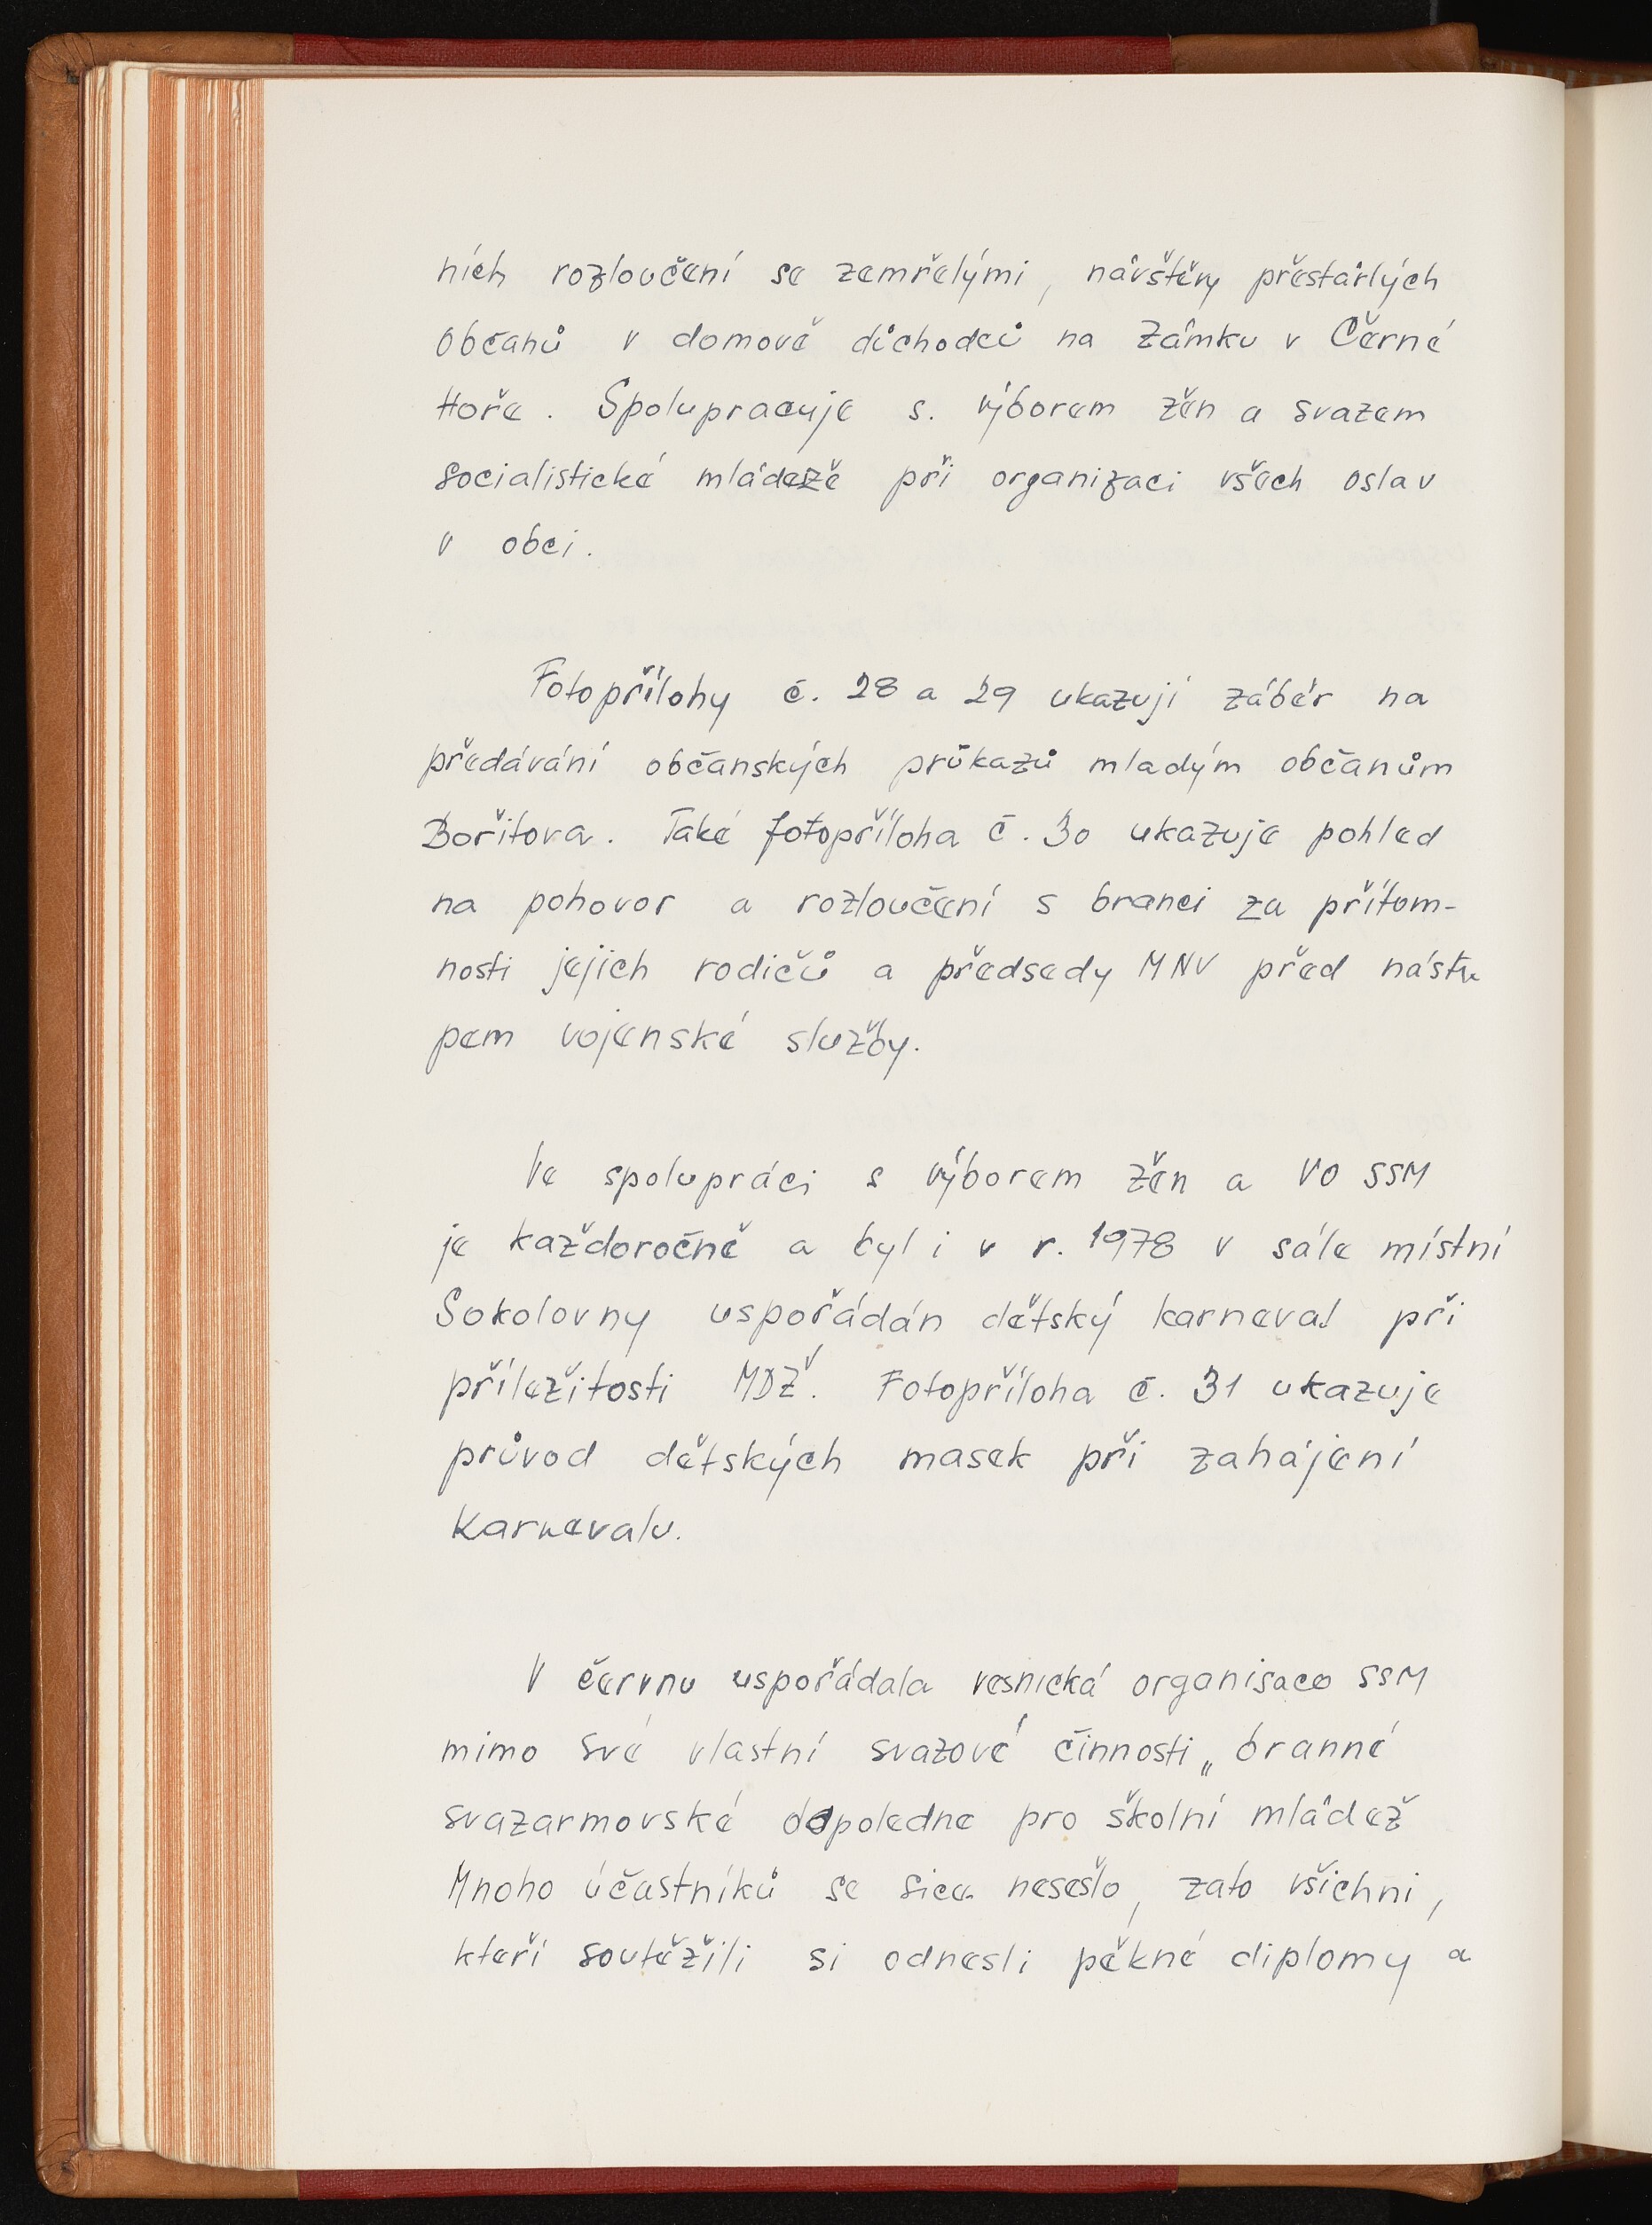 ních rozloučení se zemřelými, návštěvy přestárlých
občanů v domově důchodců na Zámku v Černé
Hoře. Spolupracuje s. výborem žen a svazem
socialistické mládeže při organizaci všech oslav
v obci.
Fotopřílohy č. 28 a 29 ukazují záběr na
předávání občanských průkazů mladým občanům
Bořitova. Také fotopříloha č. 30 ukazuje pohled
na pohovor a rozloučení s branci za přítom-
nosti jejich rodičů a předsedy MNV před nástu
pem vojenské služby.
Ve spolupráci s výborem žen a VO SSM
je každoročně a byl i v r. 1978 v sále místní
Sokolovny uspořádán dětský karneval při
příležitosti MDŽ. Fotopříloha č. 31 ukazuje
průvod dětských masek při zahájení
Karnevalu.
V červnu uspořádala vesnická organisace SSM
mimo své vlastní svazové činnosti „branné
svazarmovské dopoledne pro školní mládež
Mnoho účastníků se sice nesešlo, zato všichni,
kteří soutěžili si odnesli pěkné diplomy a